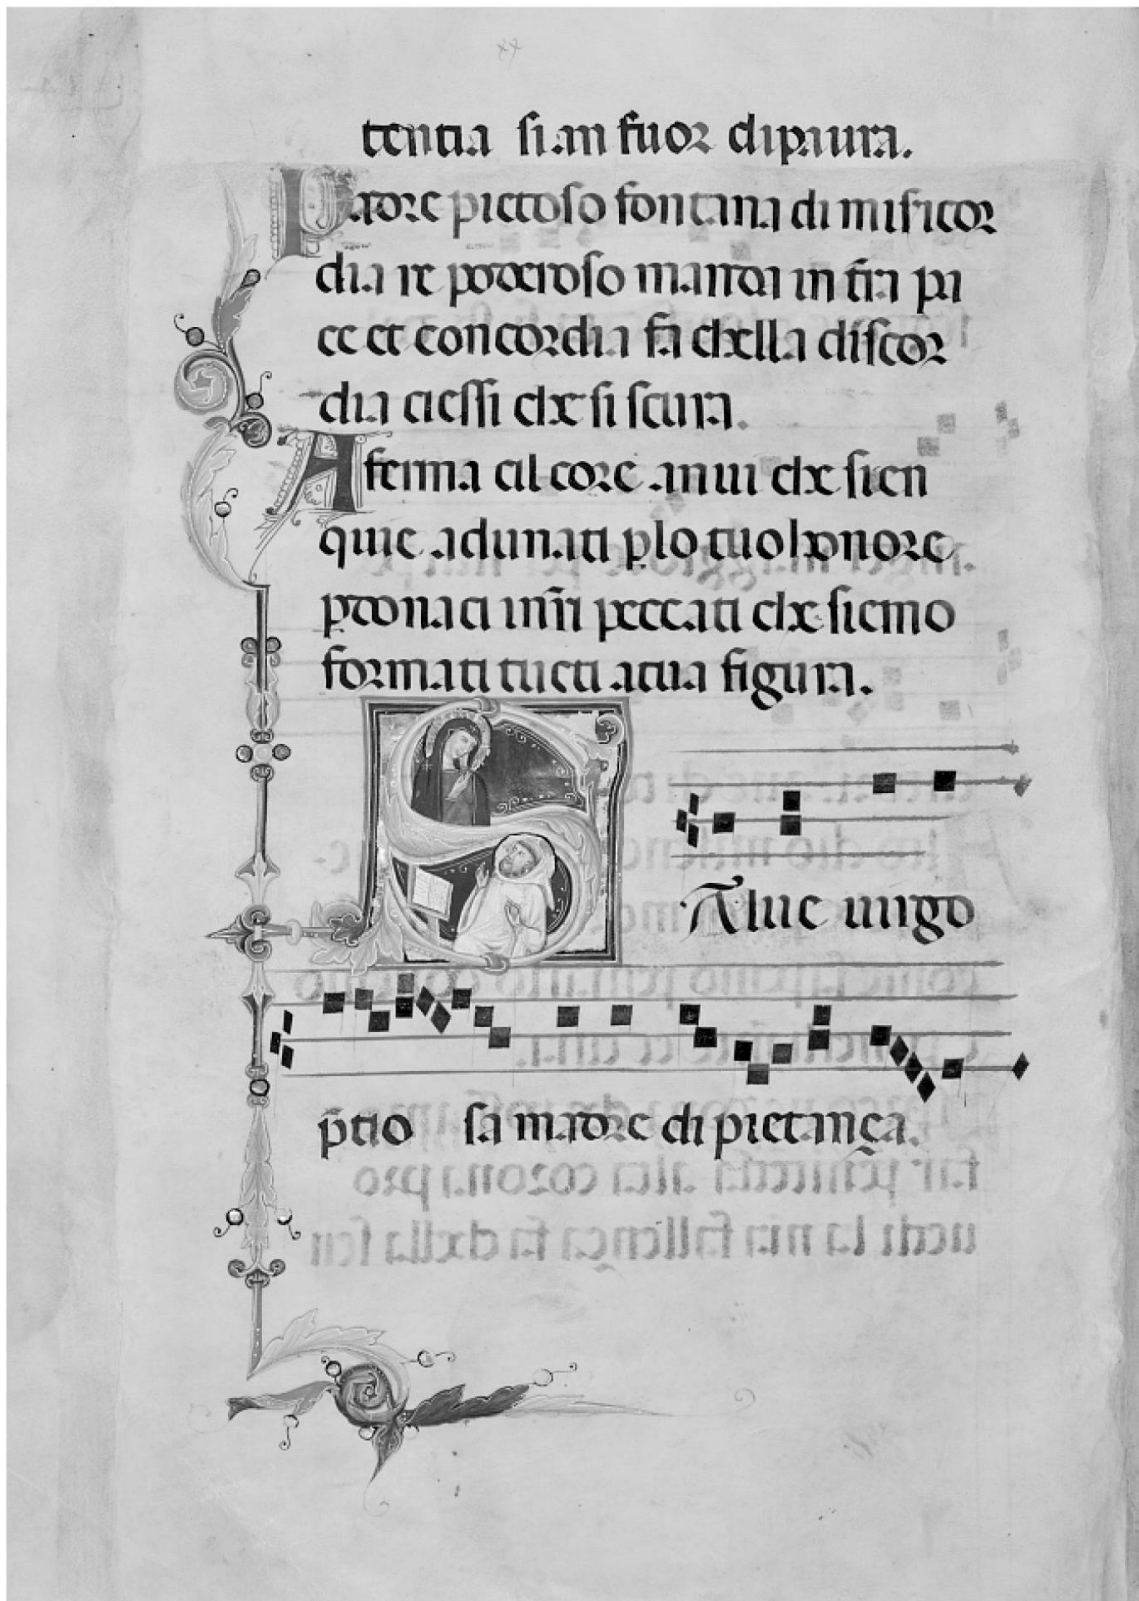 xx
tentia sian fuor dipaura.
Padre pietoso fontana di misicor
dia re poderoso manda in tr̄a pa
ce et concordia fa chella discor
dia ciessi che si scura.
Aferma cil core anui che sien
quie adunati p̱lo tuo honore
p̱donaci inr̄i peccati che siemo
formati tucti atua figura.
SAlue uirgo
p̄tio sa madre di pietança.